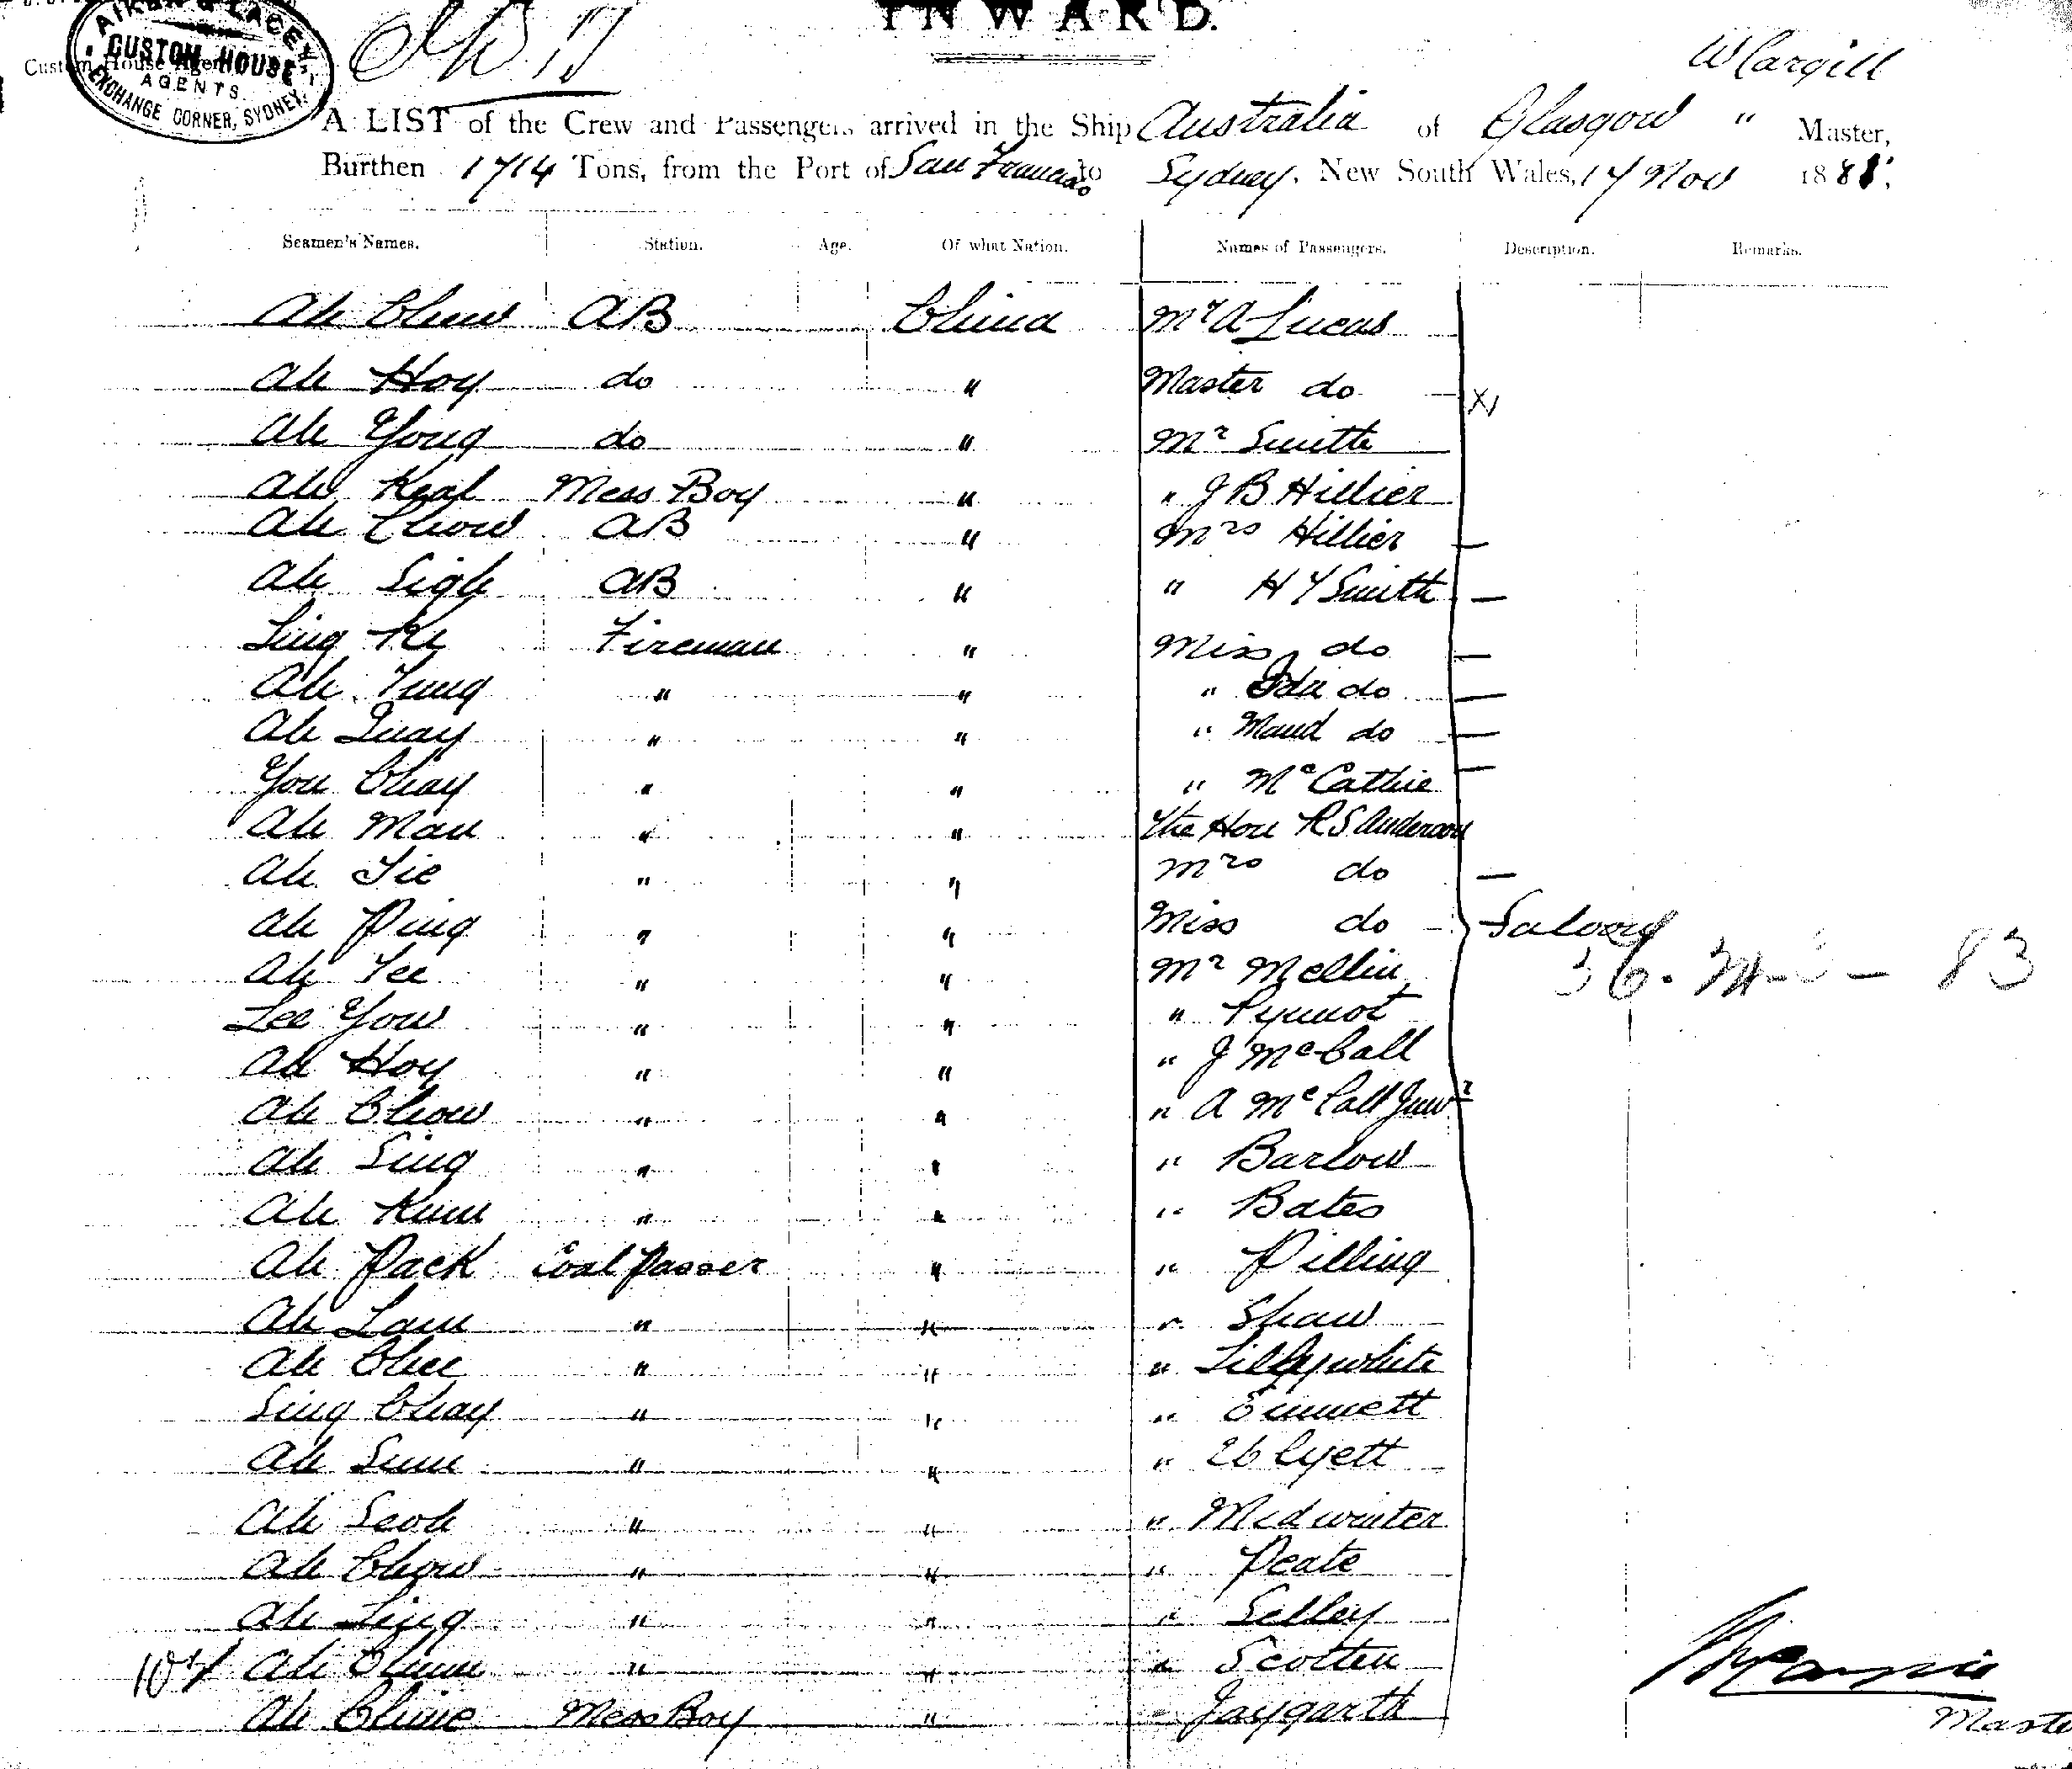 INWARD.
W Cargill
CUSTOM HOUSE
AGENTS
EXCHANGE CORNER, SYDNEY.
A LIST of the Crew and Passengers arrived in the Ship Australia of Glasgow " Master,
Burthen 1714 Tons, from the Port of San Francisco to Sydney, New South Wales, 17 Nov 1881.
Seamen's Names. Station. Age. Of what Nation. Names of Passengers. Description. Remarks.
Ah Chew AB China Mr A Lucas
Ah Hoy do " Master do
Ah Yong do " Mr Smith
Ah Mess Boy " " J B Hillier
Ah Chow AB " Mrs Hillier
Ah Sigh AB " " H Y Smith
Ling Ke Fireman " Miss do
Ah Tung " " " Ida do
Ah Quay " " " Maud do
You Chay " " " McCathie
Ah Man " " The Hon R S Anderson
Ah Tie " " Mrs do
Ah Ping " " Miss do Saloon
Ah Yee " " Mr Mellin
36. 83
Lee Yow " " "
Ah Hoy " " " J McCall
Ah Chow " " " A McCall Junr
Ah Sing " " " Barlow
Ah Kum " " " Bates
Ah Pack Coal Passer " " Pilling
Ah Lam " " " Shaw
Ah Chee " " " Lillywhite
Sing Chay " " " Emmett
Ah Sum " " " Ulyett
Ah " " " Midwinter
Ah Chow " " " Peate
Ah Ling " " " Selley
104 Ah Chum " " " Scotten
Ah Chime Mess Boy " " Jaygarth
Master